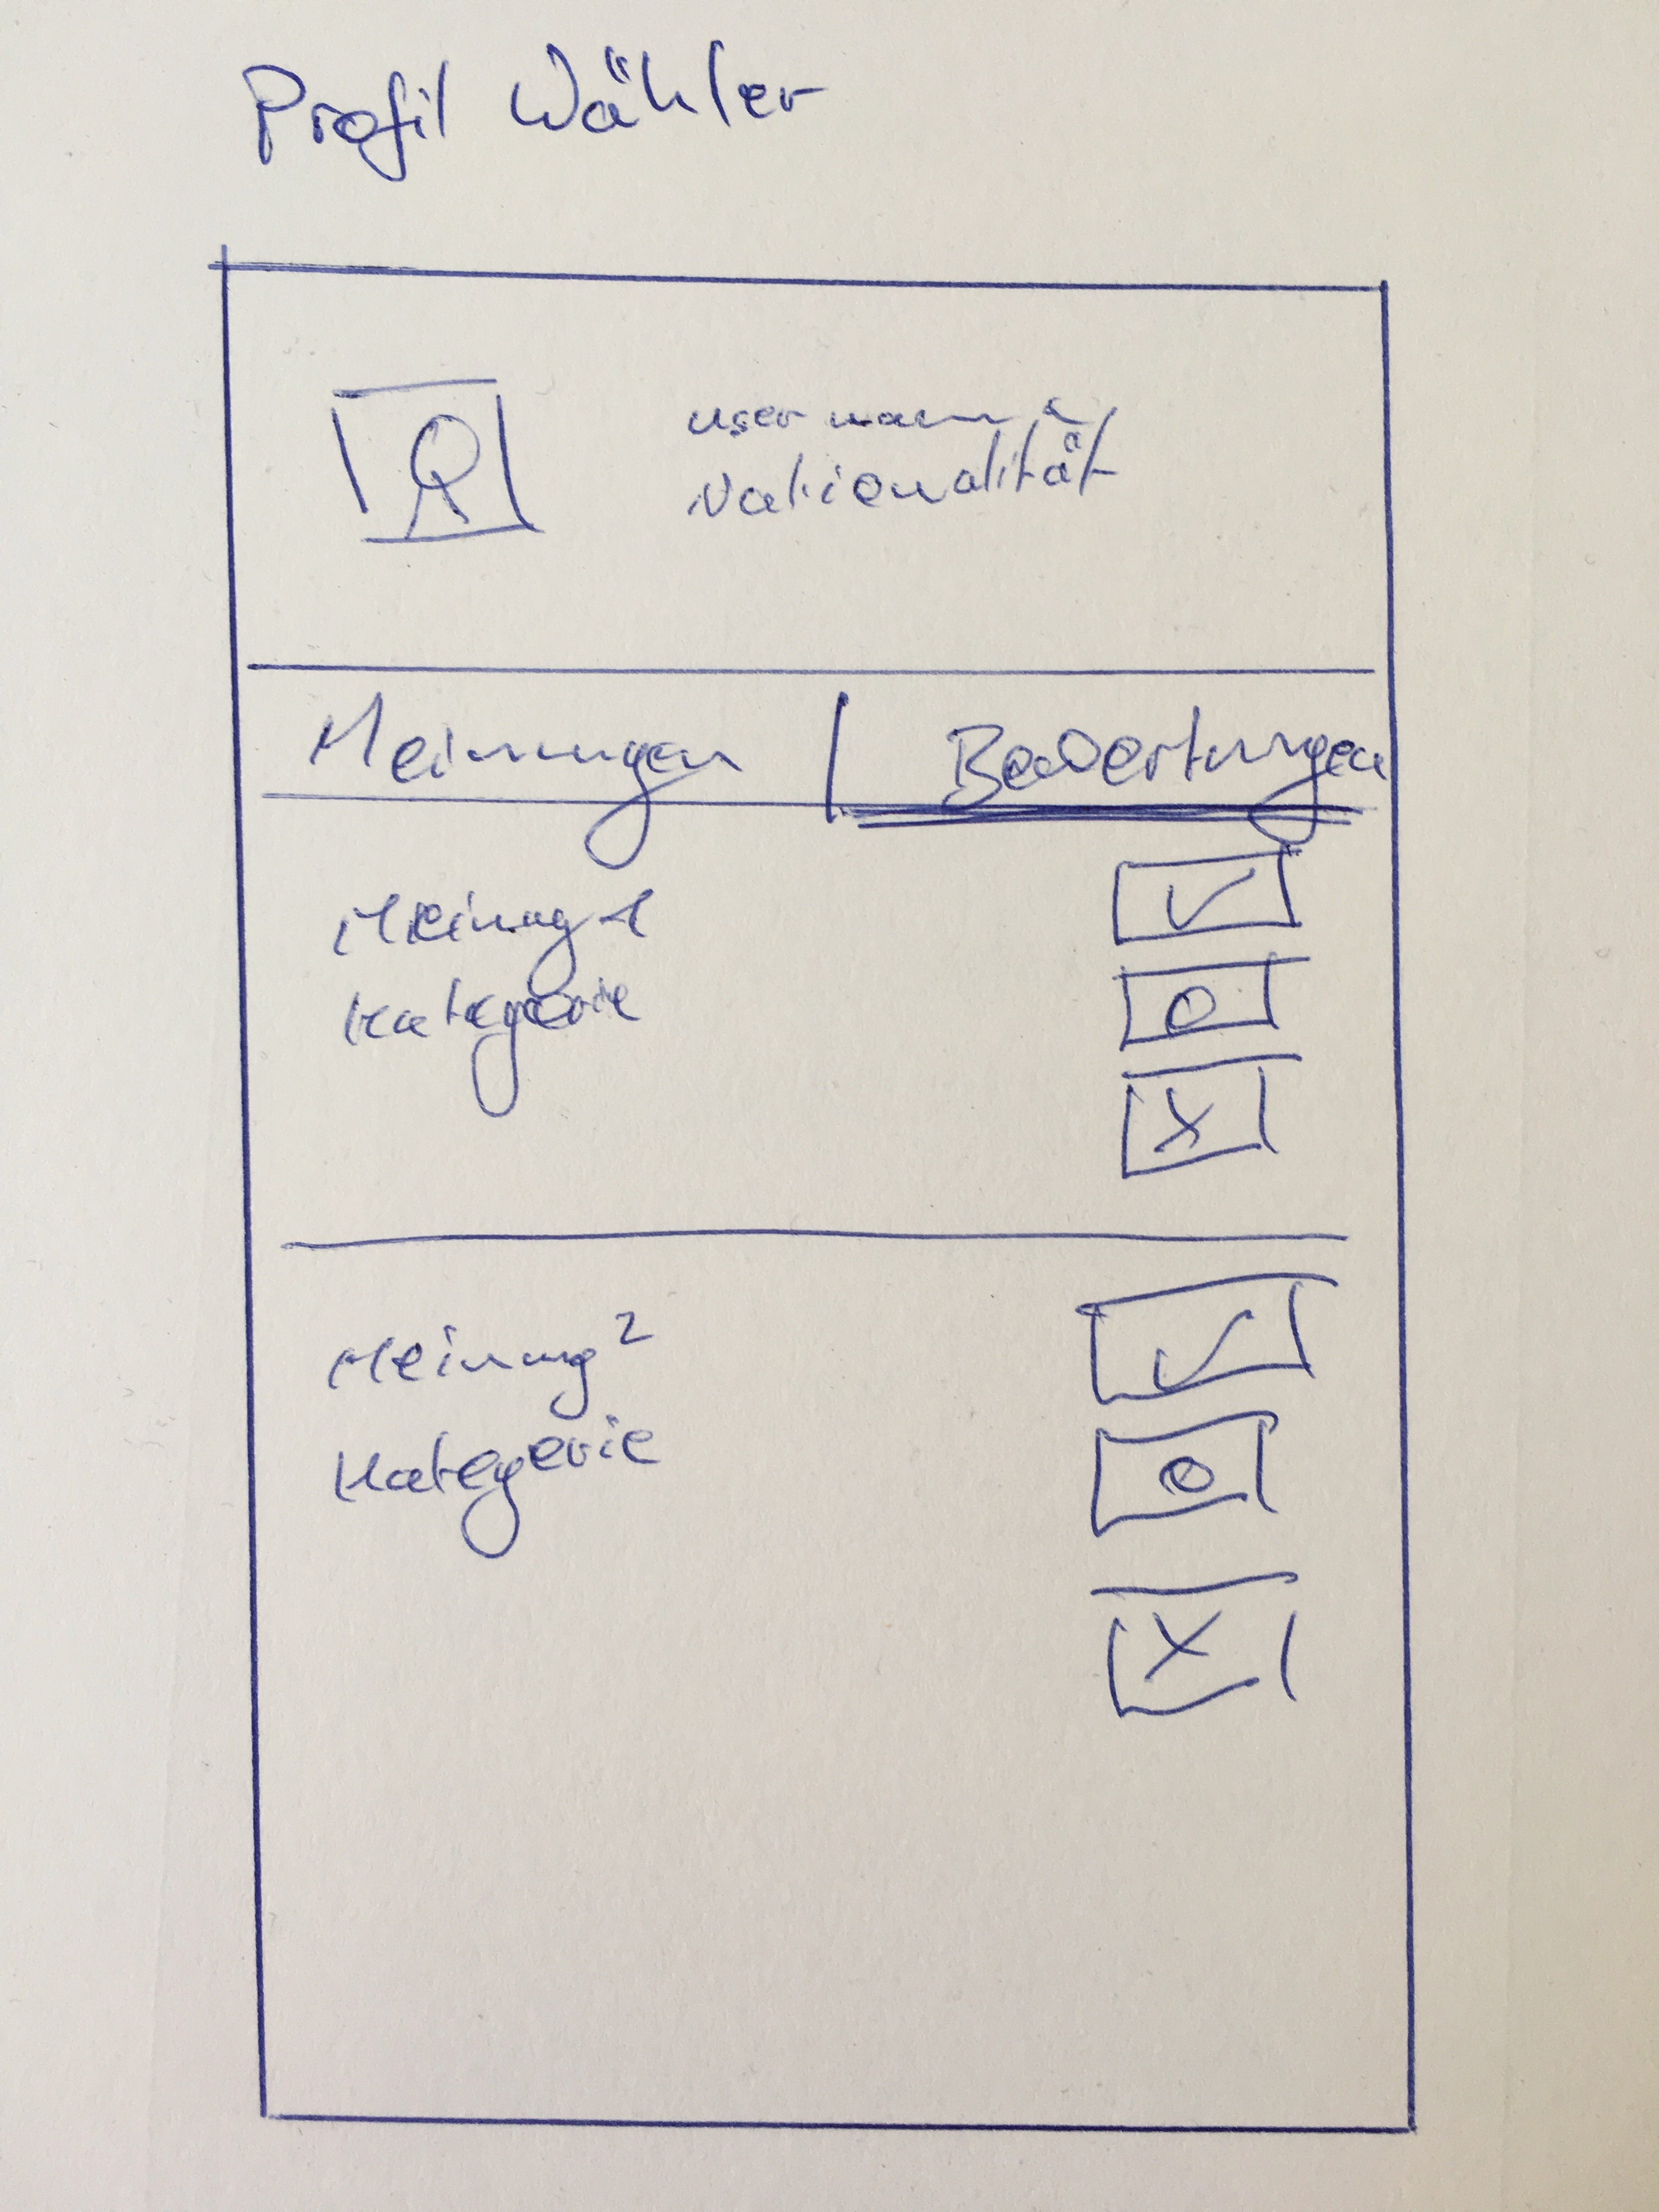 Profil Wähler
username
Nationalität
Meinungen | Bewertungen
Meinung 1
Kategorie
Meinung 2
Kategorie